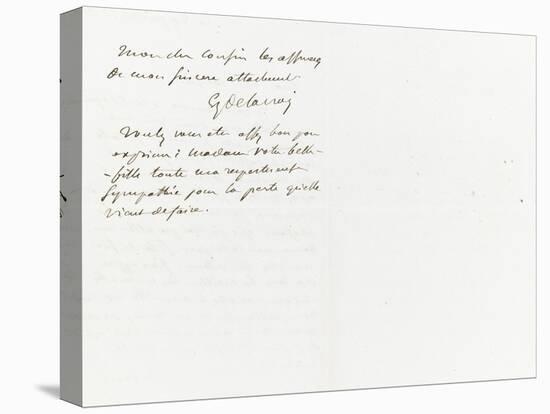 mon cher cousin les assurances
de mon sincere attachement
Eg delacroix
Voulez vous etre assez bon pour
exprimer à madame votre belle-
-fille toute ma respectueuse
sympathie pour la perte qu'elle
vient de faire.